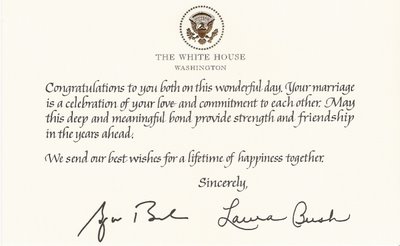 THE WHITE HOUSE
WASHINGTON
Congratulations to you both on this wonderful day. Your marriage
is a celebration of your love and commitment to each other. May
this deep and meaningful bond provide strength and friendship
in the years ahead.
We send our best wishes for a lifetime of happiness together.
Sincerely,
Laura Bush